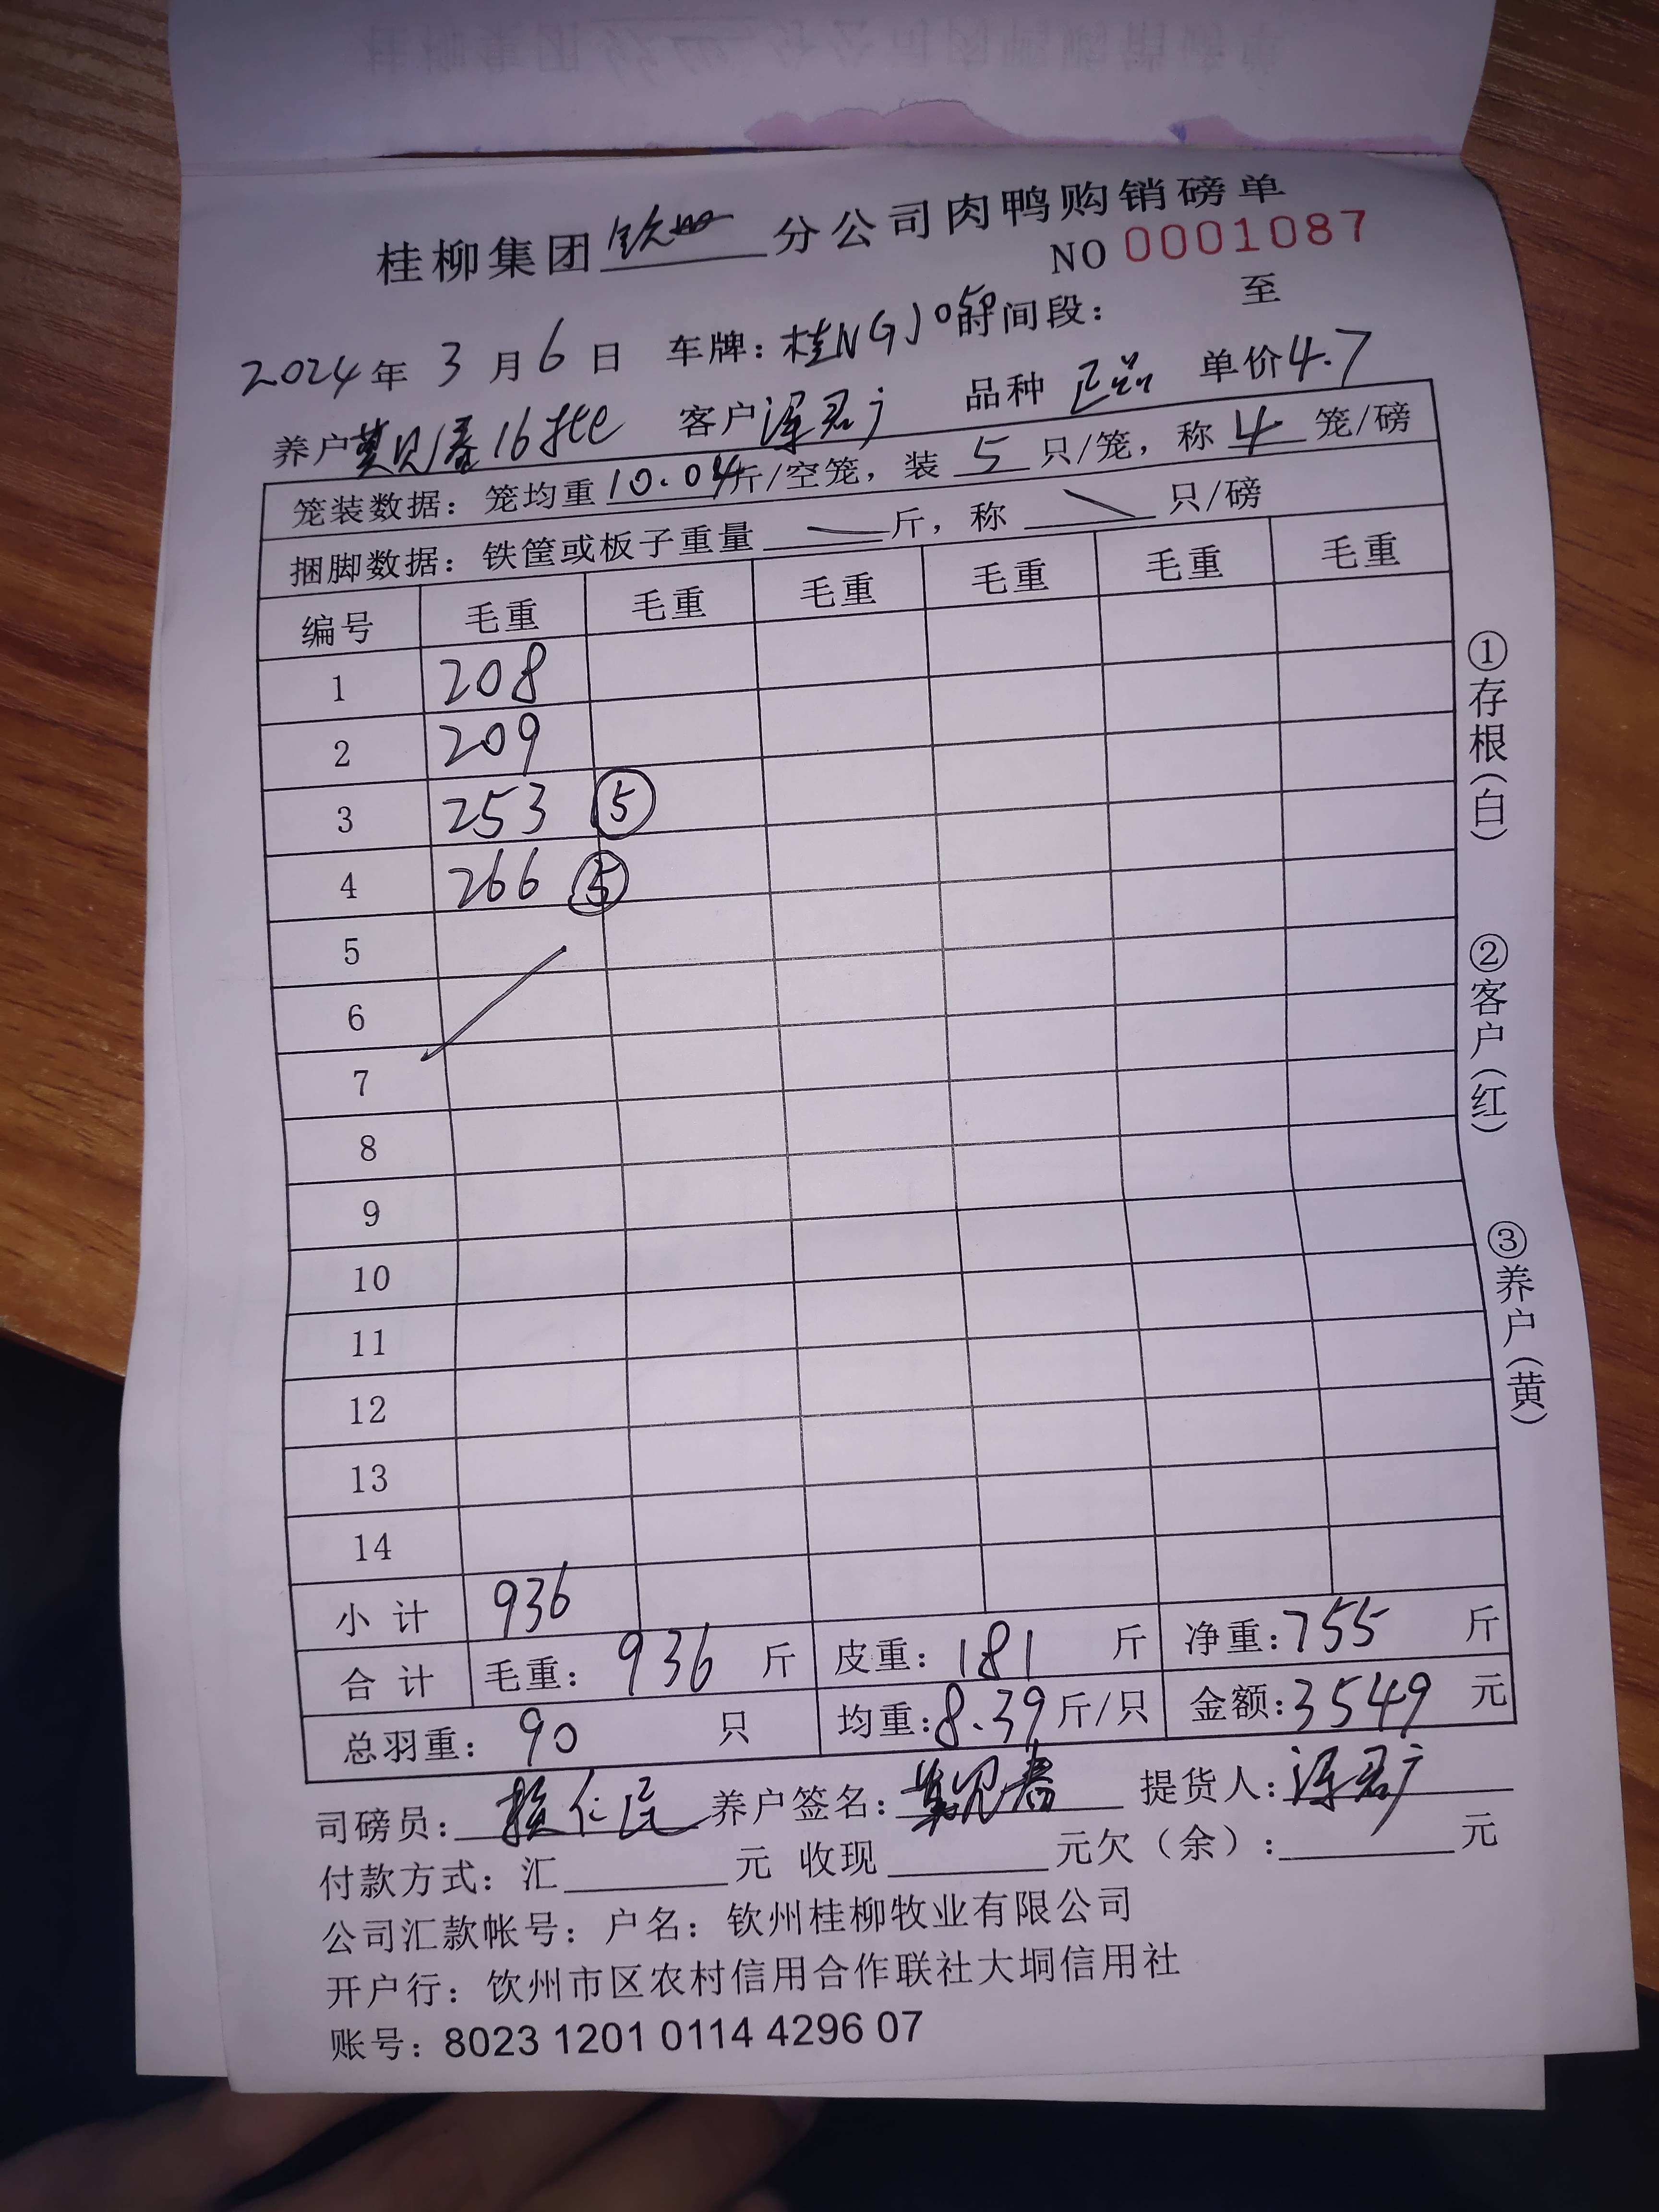 桂柳集团钦州分公司肉鸭购销磅单
NO 0001087
2024年 3月6日 车牌：桂NGJ050 时间段： 至
养户 莫贝春16批 客户 泽君广 品种 正品 单价4.7
笼装数据：笼均重10.04斤/空笼，装 5 只/笼，称 4 笼/磅
捆脚数据：铁筐或板子重量 斤，称 只/磅
编号 毛重 毛重 毛重 毛重 毛重 毛重
1 208
2 209
3 253 ⑤
4 266 ⑤
5
6
7
8
9
10
11
12
13
14
小计 936
合计 毛重：936 斤 皮重：181 斤 净重：755 斤
总羽重：90 只 均重：8.39斤/只 金额：3549 元
司磅员： 养户签名：莫贝春 提货人：泽君广
付款方式：汇 元 收现 元欠（余）： 元
公司汇款帐号：户名：钦州桂柳牧业有限公司
开户行：钦州市区农村信用合作联社大垌信用社
账号：8023 1201 0114 4296 07
①存根（白）
②客户（红）
③养户（黄）